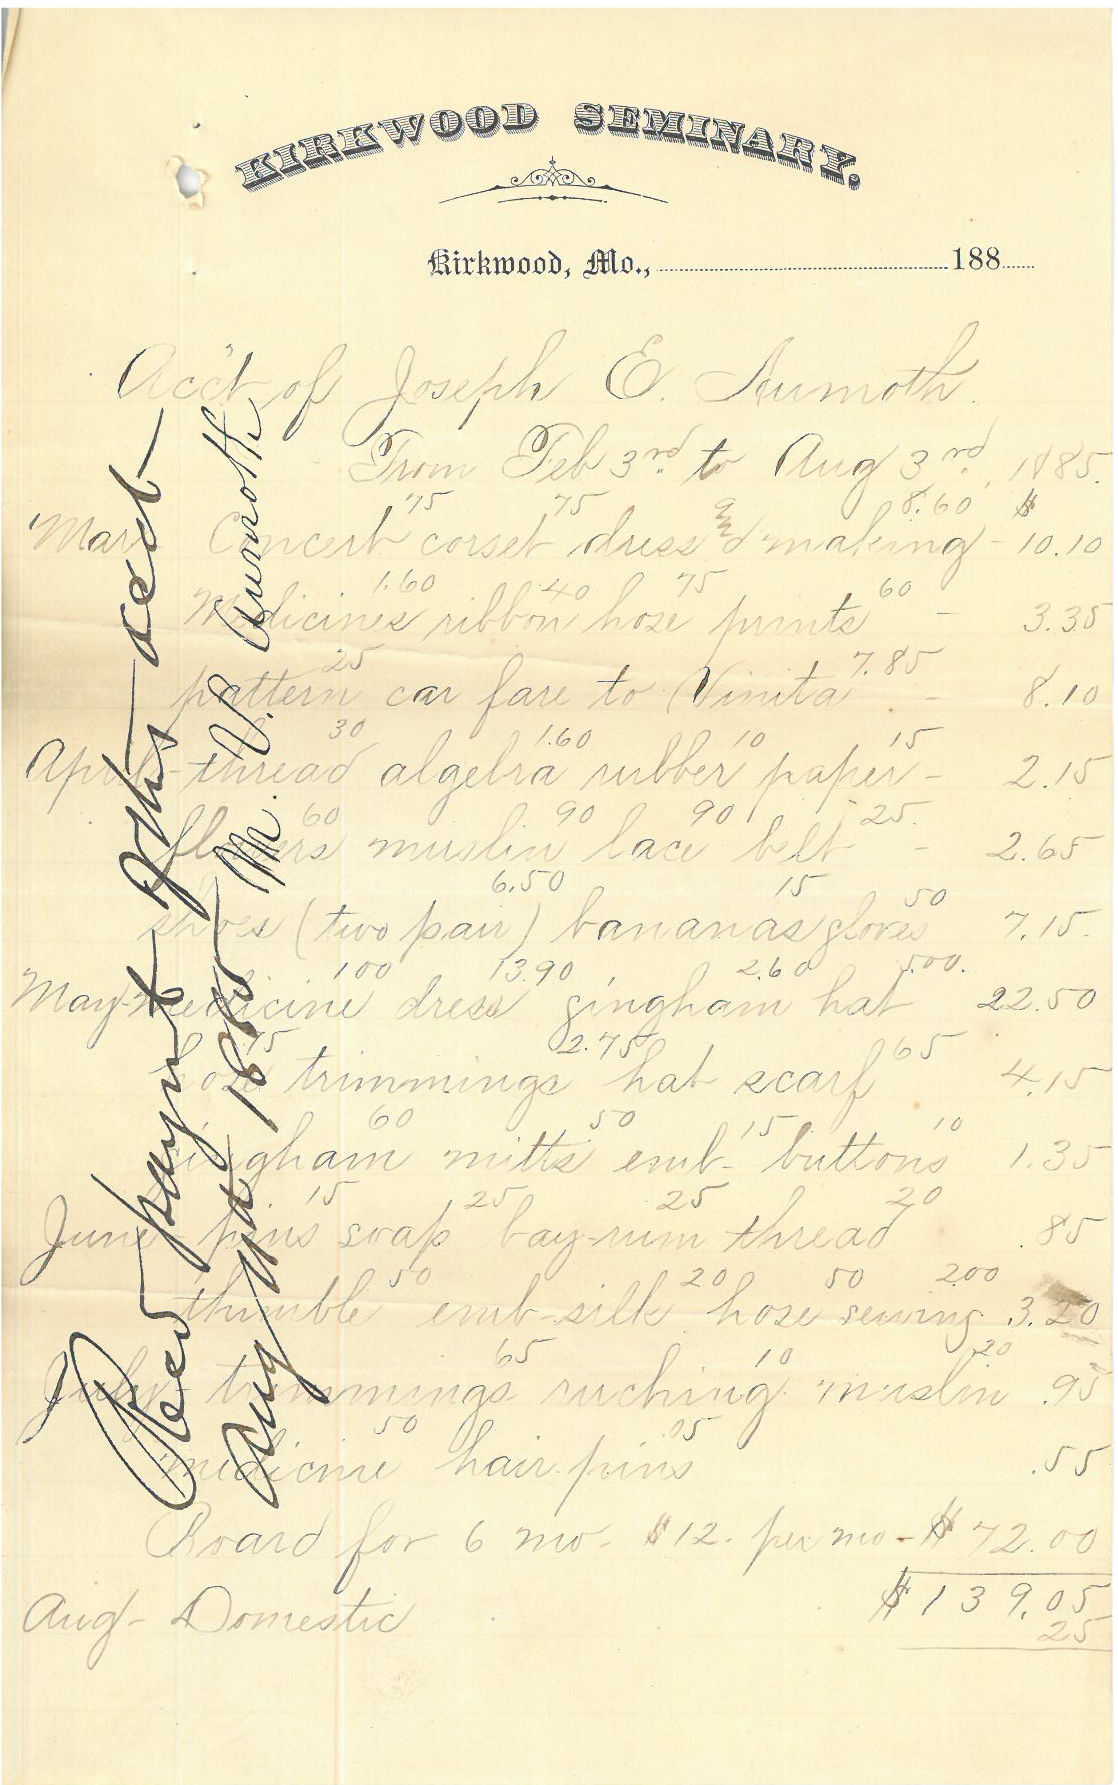 KIRKWOOD SEMINARY.
Kirkwood, Mo., 188
Acc't of Joseph E. Aumoth.
From Feb 3rd to Aug 3rd, 1885.
75 75 8.60 $
Mar Concert corset dress making - 10.10
1.60 40 75 60
Medicines ribbon hose prints - 3.35
25 7.85
pattern car fare to Vinita - 8.10
30 1.60 10 15
April - thread algebra rubber paper - 2.15
60 90 90 25.
flowers muslin lace belt - 2.65
6.50 15 50
shoes (two pair) bananas gloves 7.15.
100 13.90 2.60 5.00.
May - medicine dress gingham hat 22.50
75 2.75 65
hose trimmings hat scarf 4.15
60 50 15 10
gingham mitts emb- buttons 1.35
15 25 25 20
June pins soap bay-rum thread .85
50 20 50 2.00
thimble emb-silk hose sewing 3.20
65 10 20
July - trimmings ruching muslin .95
50 05
medicine hair pins .55
Board for 6 mo - $12. per mo - $72.00
$139.05
Aug - Domestic 25
Recd paymt of this acct
Aug 1885 M. V. Aumoth